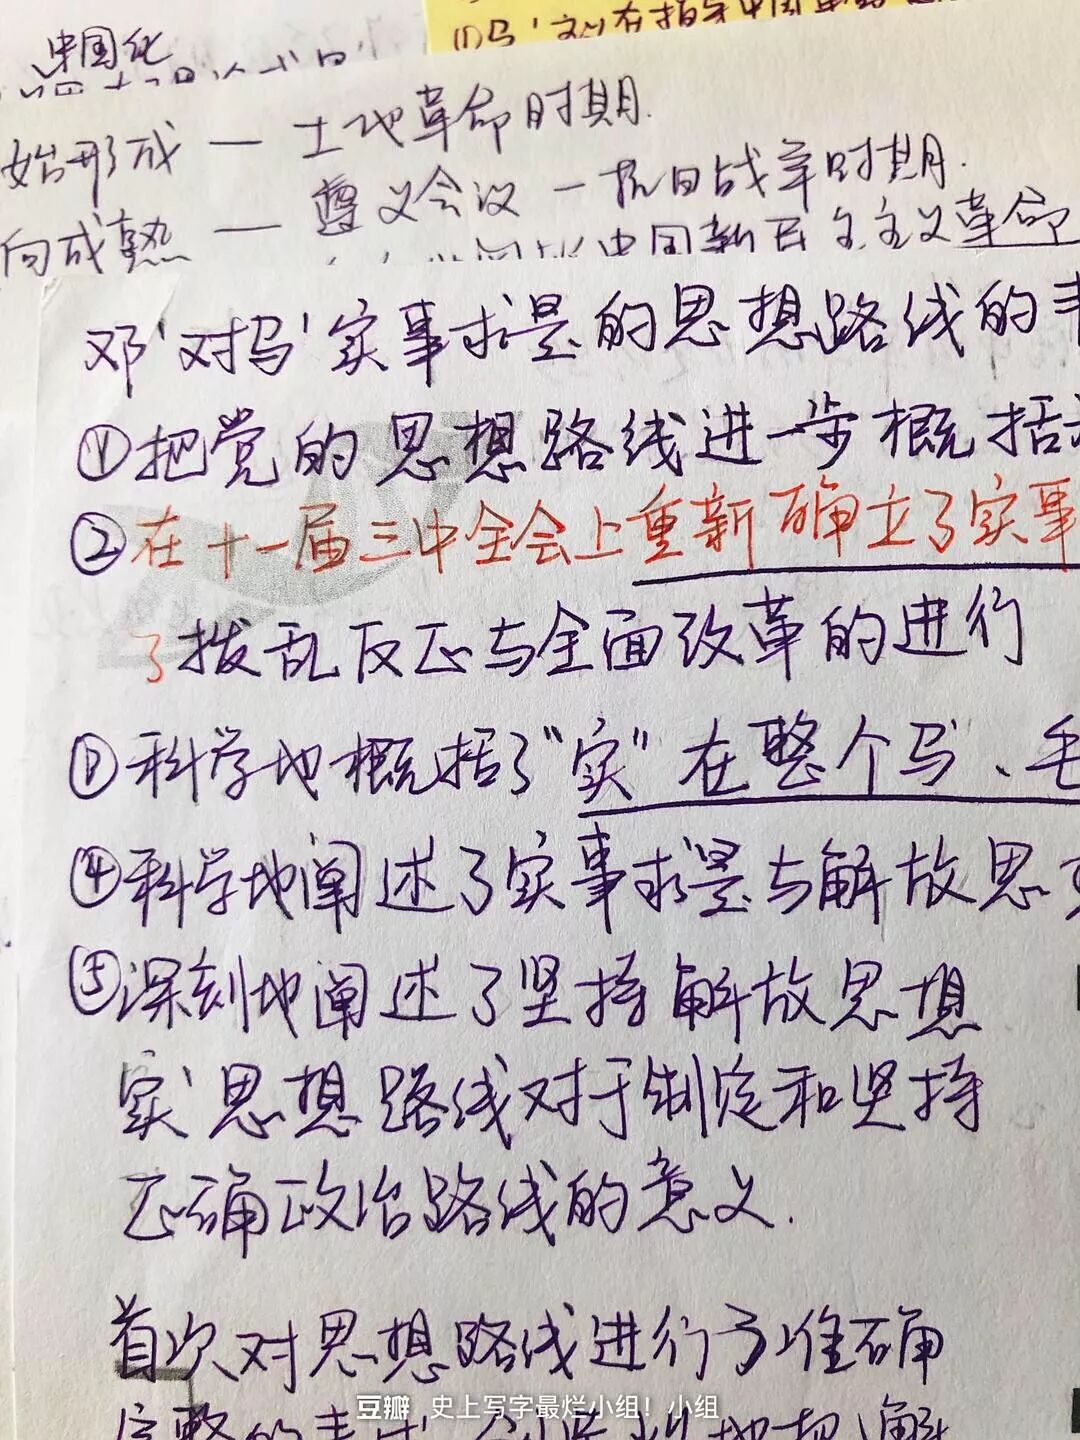 中国化
始形成 — 土地革命时期.
向成熟 — 遵义会议 — 抗日战争时期.
中国新民主主义革命
邓'对马'实事求是的思想路线的丰
①把党的思想路线进一步概括
②在十一届三中全会上重新确立了实事
了拨乱反正与全面改革的进行
③科学地概括了"实"在整个马、毛
④科学地阐述了实事求是与解放思
⑤深刻地阐述了坚持解放思想
实'思想路线对于制定和坚持
正确政治路线的意义.
首次对思想路线进行了准确
完整的表述
豆瓣 史上写字最烂小组！小组